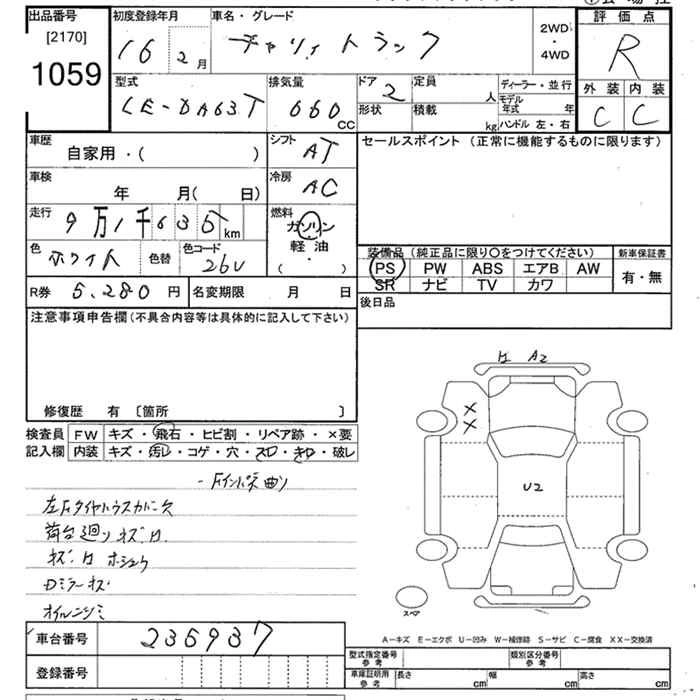 出品番号 初度登録年月 車名・グレード 2WD・4WD 評価点
[2170]
1059
16 2月 キャリィトラック R
型式 排気量 ドア 定員 ディーラー・並行 外装 内装
LE-DA63T 660cc 2 人 モデル年式 年 C C
形状 積載 kg ハンドル 左・右
車歴 シフト セールスポイント (正常に機能するものに限ります)
自家用・( ) AT
車検 年 月( 日) 冷房 AC
走行 9万1千635km 燃料 ガソリン
軽油
・
( )
色 ホワイト 色替 色コード 26U
装備品 (純正品に限り○をつけてください) 新車保証書
PS PW ABS エアB AW 有・無
SR ナビ TV カワ
R券 5,280円 名変期限 月 日 後日品
注意事項申告欄(不具合内容等は具体的に記入して下さい)
修復歴 有 [箇所 ]
検査員 FW キズ・飛石・ヒビ割・リペア跡・×要
記入欄 内装 キズ・汚レ・コゲ・穴・スレ・キレ・破レ
左Fタイヤハウスカバー欠
荷台廻りキズ、H
キズ、H ホシュウ
Dミラーキズ
オイルニジミ
H A2
×
×
U2
スペア
A-キズ E-エクボ U-凹み W-補修跡 S-サビ C-腐食 XX-交換済
車台番号 235937
登録番号
型式指定番号 参考 類別区分番号 参考
車庫証明用 参考 長さ cm 幅 cm 高さ cm